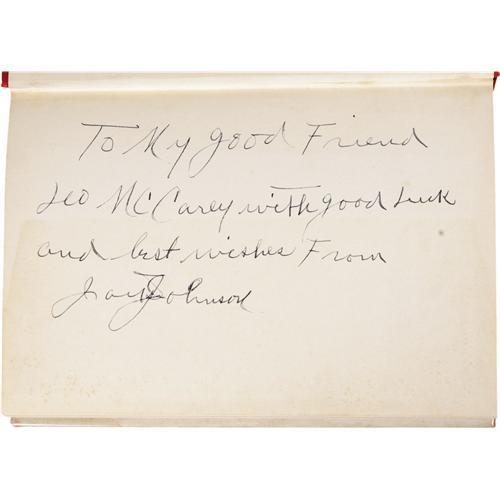 To My good Friend
Leo McCarey with good Luck
and best wishes From
Johnson